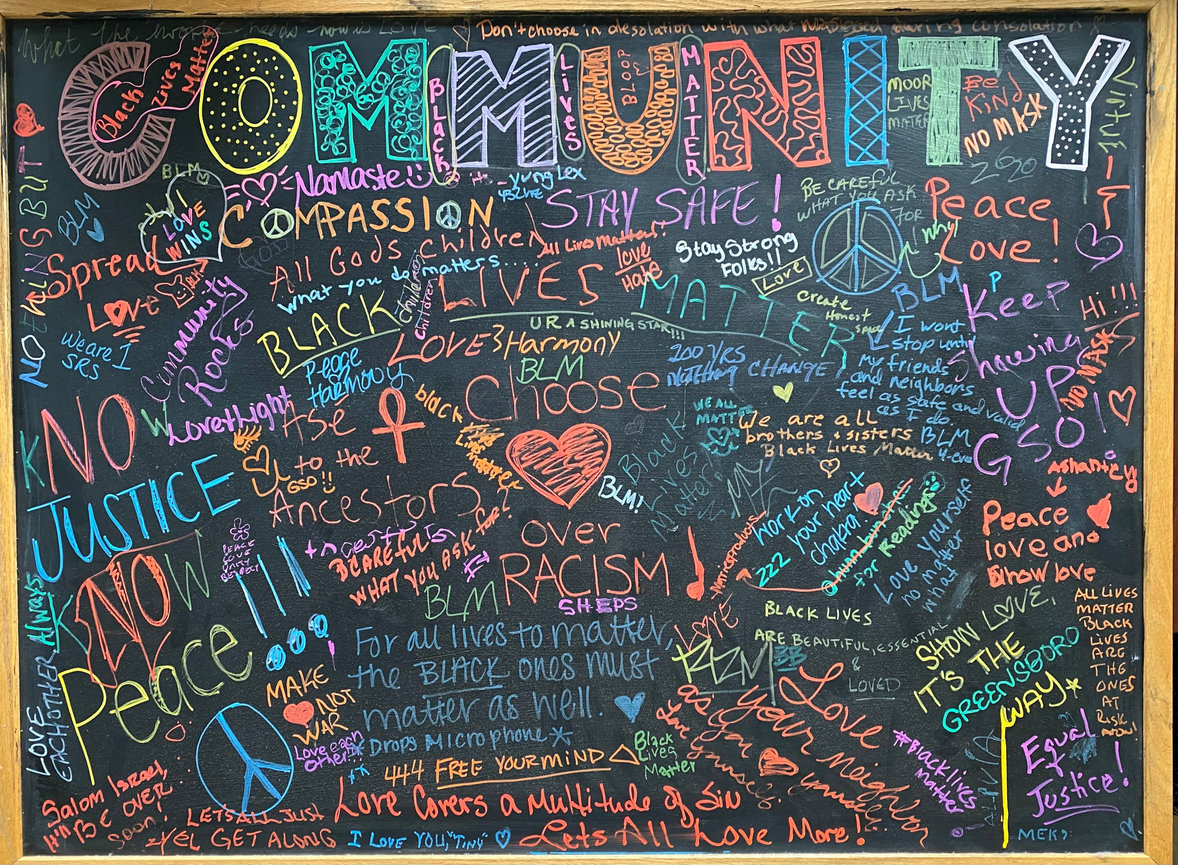 What the world needs now is LOVE
Don't choose in desolation with what was during consolation
COMMUNITY
Black Lives Matter
Black
LIVES
BLOOP
MATTER
MOOR
LIVES
MATTER
BE
KIND
NO MASK
2020
BLM
Namaste
yung Lex
BLM
LOVE
WINS
COMPASSION
STAY SAFE!
BE CAREFUL
WHAT YOU ASK
FOR
why
Peace,
Love!
NOTHING BUT
Spread
Love
All Gods Children
All Lives Matter!
love
Hate
Stay Strong
FOLKS!!
Love
what you do matters.....
Children
Children
BLACK LIVES MATTER
Create
Honest
Space
BLM
KEEP
Showing
UP!
GSO!
Hi!!!
NO MASK
We are 1
SRS
Community
Rocks
U R A SHINING STAR!!!
LOVE & Harmony
Peace
HARMONY
BLM
200 YRS
Nothing CHANGE
I wont
stop until
my friends
and neighbors
feel as safe and valid
as I do.
BLM
4-eva
NO
JUSTICE
NOW
K
W
Love+Light
Ase
to the
Ancestors
GSO!!
black
Lives
matter
Choose
over
RACISM!
WE ALL
MATTER
We are all
brothers + sisters
Black Lives Matter
Black
Lives
Matter
BLM!
Work on
your heart
chakra!
222
for Readings
Love yourself
no matter
what
Ashanti
Peace
love and
Show love
PEACE
LOVE
UNITY
RESPECT
BCAREFUL
WHAT YOU ASK for!
BLM
SHEPS
LOVE
BLACK LIVES
ARE BEAUTIFUL, ESSENTIAL
&
LOVED
SHOW LOVE,
IT'S THE
GREENSBORO
WAY
ALL LIVES
MATTER
BLACK
LIVES
ARE
THE
ONES
AT
RISK
NOW!
Always
LOVE
EACHOTHER
Peace
For all lives to matter,
the BLACK ones must
matter as well.
*Drops MICROPHONE*
MAKE
NOT
WAR
Love each
Other!!
444 FREE YOUR MIND
Black
Lives
Matter
Love
your Neighbor
as you
#Blacklives
matter
Equal
Justice!
Salom Israel,
It'll BE OVER
Soon!
LETS ALL JUST
GET ALONG
Love Covers a Multitude of Sin
I LOVE YOU, "TINY"
Lets All Love More!
MEK